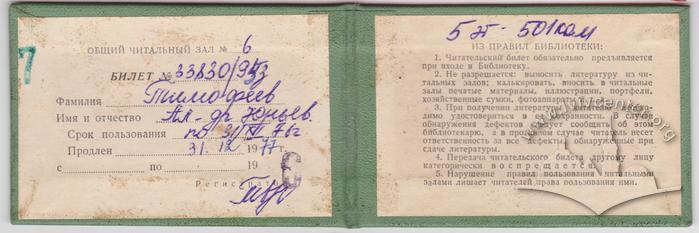 7
ОБЩИЙ ЧИТАЛЬНЫЙ ЗАЛ № 6
БИЛЕТ № 33830/953
Фамилия Тимофеев
Имя и отчество Ал-др Юрьев.
Срок пользования по 31/XII 76г
Продлен 31.12 1977г.
с по 19
Регистратор
5 эт - 501 ком
ИЗ ПРАВИЛ БИБЛИОТЕКИ:
1. Читательский билет обязательно предъявляется
при входе в Библиотеку.
2. Не разрешается: выносить литературу из чи-
тальных залов; калькировать, вносить в читальные
залы печатые материалы, иллюстрации, портфели,
хозяйственные сумки, фотоаппараты
3. При получении литературы читатель должен
удостовериться в ее сохранности. В случае
обнаружения дефектов следует сообщить об этом
библиотекарю, а в противном случае читатель несет
ответственность за все дефекты, обнаруженные при
сдаче литературы.
4. Передача читательского билета другому лицу
категорически воспрещается.
5. Нарушение правил пользования читальными
залами лишает читателей права пользования ими.
www.lvivcenter.org